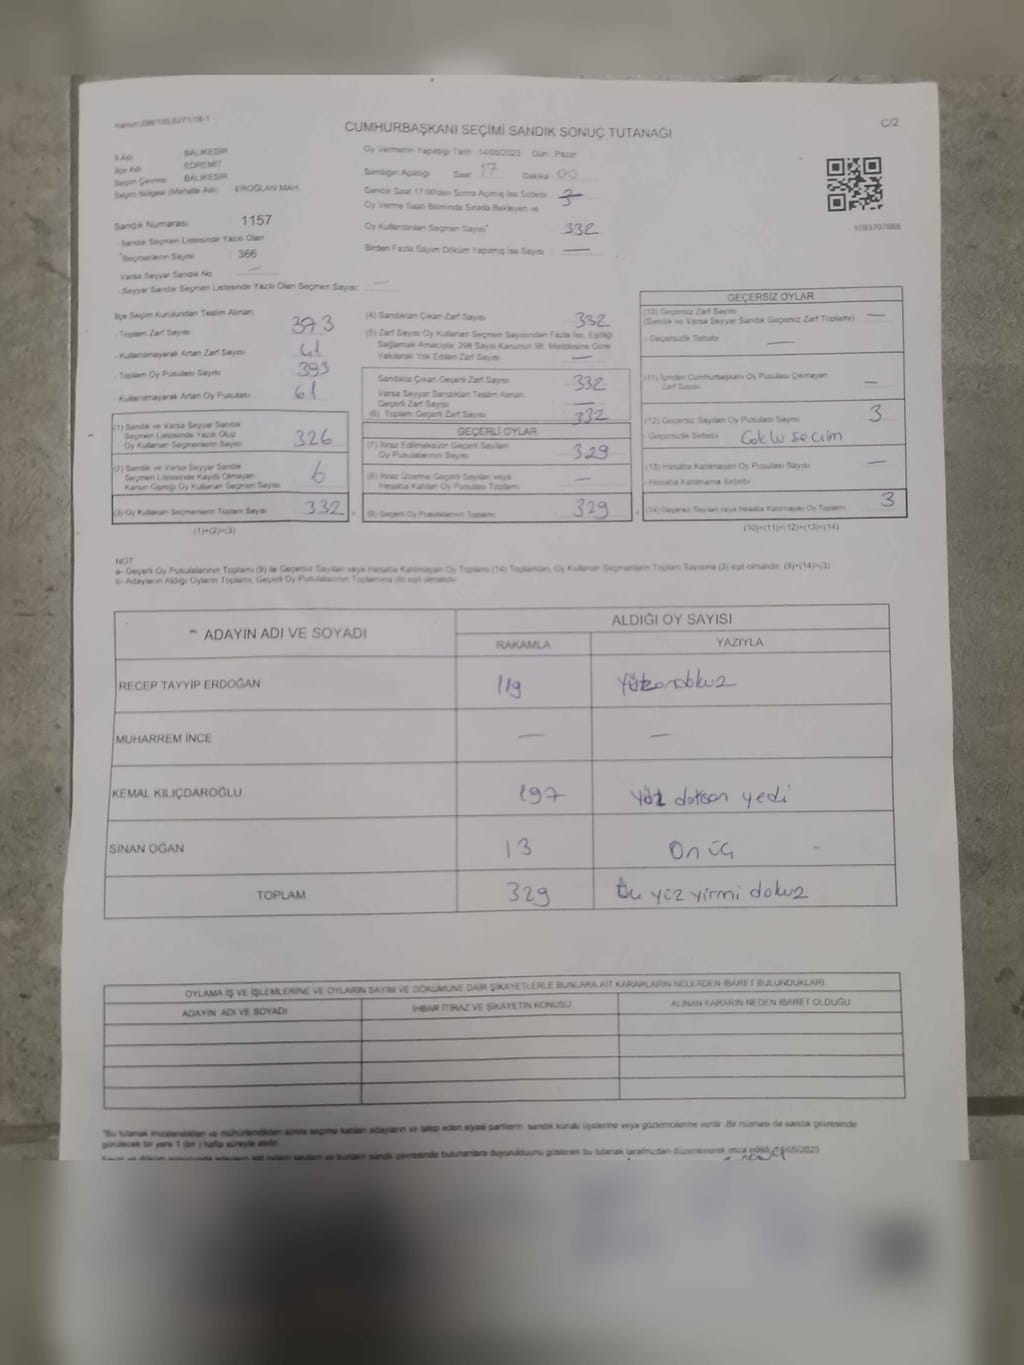 CUMHURBAŞKANI SEÇİMİ SANDIK SONUÇ TUTANAĞI
C/2
İl Adı BALIKESİR
İlçe Adı EDREMİT
Seçim Çevresi BALIKESİR
Seçim Bölgesi (Mahalle Adı) EROĞLAN MAH.
Sandık Numarası 1157
- Sandık Seçmen Listesinde Yazılı Olan
Seçmenlerin Sayısı : 366
Varsa Seyyar Sandık No —
- Seyyar Sandık Seçmen Listesinde Yazılı Olan Seçmen Sayısı: —
Oy Vermenin Yapıldığı Tarih : 14/05/2023 Gün : Pazar
Sandığın Açıldığı Saat : 17 Dakika : 00
Sandık Saat 17:00'den Sonra Açılmış İse Sebebi
Oy Verme Saati Bitiminde Sırada Bekleyen ve
Oy Kullandırılan Seçmen Sayısı* 332
Birden Fazla Sayım Döküm Yapılmış İse Sayısı : —
1093707888
İlçe Seçim Kurulundan Teslim Alınan;
- Toplam Zarf Sayısı 373
- Kullanılmayarak Artan Zarf Sayısı 41
- Toplam Oy Pusulası Sayısı 393
- Kullanılmayarak Artan Oy Pusulası 61
(1) Sandık ve Varsa Seyyar Sandık
Seçmen Listesinde Yazılı Olup
Oy Kullanan Seçmenlerin Sayısı 326
(2) Sandık ve Varsa Seyyar Sandık
Seçmen Listesinde Kayıtlı Olmayan
Kanun Gereği Oy Kullanan Seçmen Sayısı 6
(3) Oy Kullanan Seçmenlerin Toplam Sayısı 332
(1)+(2)=(3)
(4) Sandıktan Çıkan Zarf Sayısı 332
(5) Zarf Sayısı Oy Kullanan Seçmen Sayısından Fazla İse, Eşitliği
Sağlamak Amacıyla; 298 Sayılı Kanunun 98. Maddesine Göre
Yakılarak Yok Edilen Zarf Sayısı —
Sandıkta Çıkan Geçerli Zarf Sayısı 332
Varsa Seyyar Sandıktan Teslim Alınan
Geçerli Zarf Sayısı —
(6) Toplam Geçerli Zarf Sayısı 332
GEÇERLİ OYLAR
(7) İtiraz Edilmeksizin Geçerli Sayılan
Oy Pusulalarının Sayısı 329
(8) İtiraz Üzerine Geçerli Sayılan veya
Hesaba Katılan Oy Pusulası Toplamı —
(9) Geçerli Oy Pusulalarının Toplamı 329
GEÇERSİZ OYLAR
(10) Geçersiz Zarf Sayısı
(Sandık ve Varsa Seyyar Sandık Geçersiz Zarf Toplamı) —
- Geçersizlik Sebebi —
(11) İçinden Cumhurbaşkanı Oy Pusulası Çıkmayan
Zarf Sayısı —
(12) Geçersiz Sayılan Oy Pusulası Sayısı 3
- Geçersizlik Sebebi Çoklu seçim
(13) Hesaba Katılmayan Oy Pusulası Sayısı —
- Hesaba Katılmama Sebebi
(14) Geçersiz Sayılan veya Hesaba Katılmayan Oy Toplamı 3
(10)+(11)+(12)+(13)=(14)
NOT:
a- Geçerli Oy Pusulalarının Toplamı (9) ile Geçersiz Sayılan veya Hesaba Katılmayan Oy Toplamı (14) Toplamları, Oy Kullanan Seçmenlerin Toplam Sayısına (3) eşit olmalıdır. (9)+(14)=(3)
b- Adayların Aldığı Oyların Toplamı, Geçerli Oy Pusulalarının Toplamına (9) eşit olmalıdır.
ADAYIN ADI VE SOYADI
ALDIĞI OY SAYISI
RAKAMLA YAZIYLA
RECEP TAYYİP ERDOĞAN 119
MUHARREM İNCE — —
KEMAL KILIÇDAROĞLU 197 yüz doksan yedi
SİNAN OĞAN 13 On üç
TOPLAM 329 yüz yirmi dokuz
OYLAMA İŞ VE İŞLEMLERİNE VE OYLARIN SAYIM VE DÖKÜMÜNE DAİR ŞİKAYETLERLE BUNLARA AİT KARARLARIN NELERDEN İBARET BULUNDUKLARI
ADAYIN ADI VE SOYADI İHBAR İTİRAZ VE ŞİKAYETİN KONUSU ALINAN KARARIN NEDEN İBARET OLDUĞU
*Bu tutanak imzalandıktan ve mühürlendikten sonra seçime katılan adayların ve talep eden siyasi partilerin, sandık kurulu üyelerine veya gözlemcilerine verilir. Bir nüshası da sandık çevresinde
görülecek bir yere 1 (bir) hafta süreyle asılır.